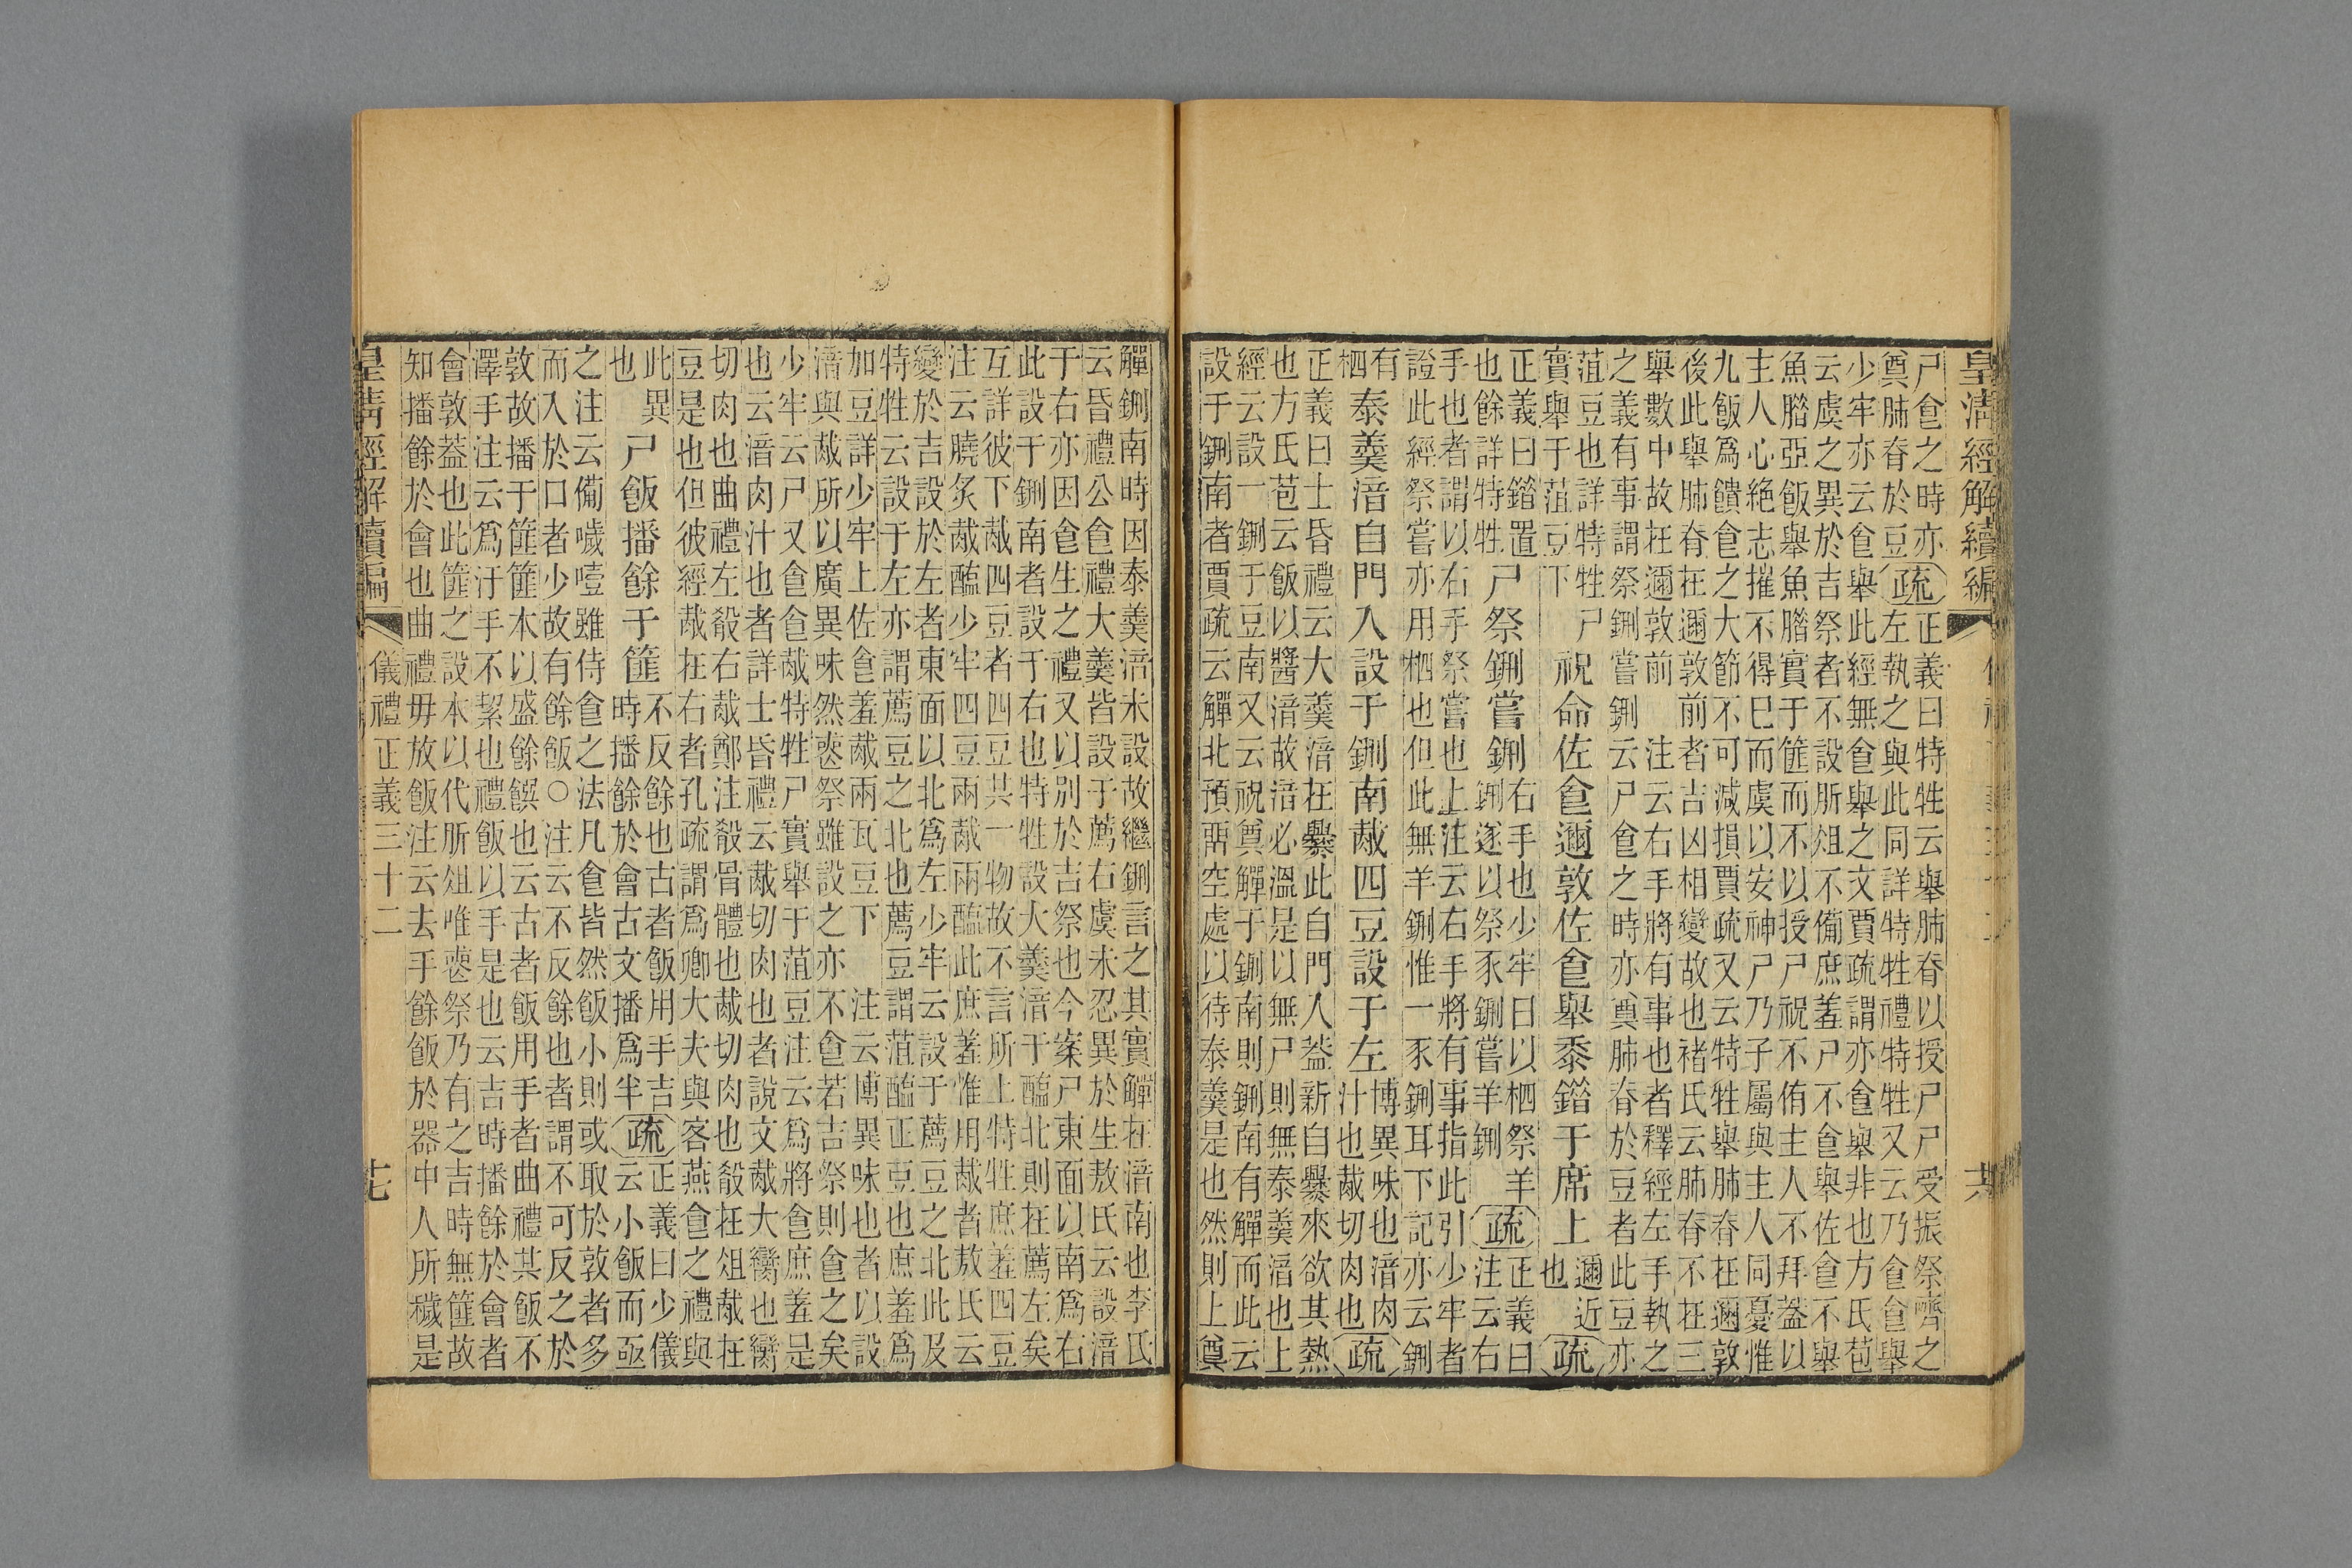 皇清經解續編
尸𠊊之時亦
奠肺脊於豆
疏
正義曰特牲云舉肺脊以授尸尸受振祭嚌之
左執之與此同詳特牲禮特牲又云乃食食舉
少牢亦云食舉此經無食舉之文賈疏謂亦食舉非也方氏苞
云虞之異於吉祭者不設肵俎不備庶羞尸不食舉佐食不舉
魚腊亞飯舉魚腊實于篚而不以授尸祝不侑主人不拜蓋以
主人心絕志摧不得已而虞以安神尸乃子屬與主人同憂惟
九飯為饋食之大節不可減損賈疏又云特牲舉肺脊在邇敦
後此舉肺脊在邇敦前者吉凶相變故也褚氏云肺脊不在三
舉數中故在邇敦前 注云右手將有事也者釋經左手執之
之義有事謂祭鉶嘗鉶云尸食之時亦奠肺脊於豆者此豆亦
菹豆也詳特牲尸
實舉于菹豆下
祝命佐食邇敦佐食舉黍錯于席上
邇近
也
疏
正義曰錯置
也餘詳特牲
尸祭鉶嘗鉶
右手也少牢曰以柶祭羊
鉶遂以祭豕鉶嘗羊鉶
疏
正義曰
注云右
手也者謂以右手祭嘗也上注云右手將有事指此引少牢者
證此經祭嘗亦用柶也但此無羊鉶惟一豕鉶耳下記亦云鉶
有
柶
泰羹湆自門入設于鉶南胾四豆設于左
博異味也湆肉
汁也胾切肉也
疏
正義曰士昏禮云大羹湆在爨此自門入蓋新自爨來欲其熱
也方氏苞云飯以醬湆故湆必溫是以無尸則無泰羹湆也上
經云設一鉶于豆南又云祝奠觶于鉶南則鉶南有觶而此云
設于鉶南者賈疏云觶北預留空處以待泰羹是也然則上奠
觶鉶南時因泰羹湆未設故繼鉶言之其實觶在湆南也李氏
云昏禮公食禮大羹皆設于薦右虞未忍異於生敖氏云設湆
于右亦因食生之禮又以別於吉祭也今案尸東面以南為右
此設于鉶南者設于右也特牲設大羹湆于醢北則在薦左矣
互詳彼下胾四豆者四豆共一物故不言所上特牲庶羞四豆
注云膮炙胾醢少牢四豆兩胾兩醢此庶羞惟用胾者敖氏云
變於吉設於左者東面以北為左少牢云設于薦豆之北此及
特牲云設于左亦謂薦豆之北也薦豆謂菹醢正豆也庶羞為
加豆詳少牢上佐食羞胾兩瓦豆下 注云博異味也者以設
湆與胾所以廣異味然喪祭雖設之亦不食若吉祭則食之矣
少牢云尸又食食胾特牲尸實舉于菹豆注云為將食庶羞是
也云湆肉汁也者詳士昏禮云胾切肉也者說文胾大臠也臠
切肉也曲禮左殽右胾鄭注殽骨體也胾切肉也殽在俎胾在
豆是也但彼經胾在右者孔疏謂為卿大夫與客燕食之禮與
此異
也
尸飯播餘于篚
不反餘也古者飯用手吉
時播餘於會古文播為半
疏
正義曰少儀
云小飯而亟
之注云備噦噎雖侍食之法凡食皆然飯小則或取於敦者多
而入於口者少故有餘飯○注云不反餘也者謂不可反之於
敦故播于篚篚本以盛餘饌也云古者飯用手者曲禮其飯不
澤手注云為汙手不絜也禮飯以手是也云吉時播餘於會者
會敦蓋也此篚之設本以代肵俎唯喪祭乃有之吉時無篚故
知播餘於會也曲禮毋放飯注云去手餘飯於器中人所穢是
皇清經解續編 儀禮正義三十二 廿七